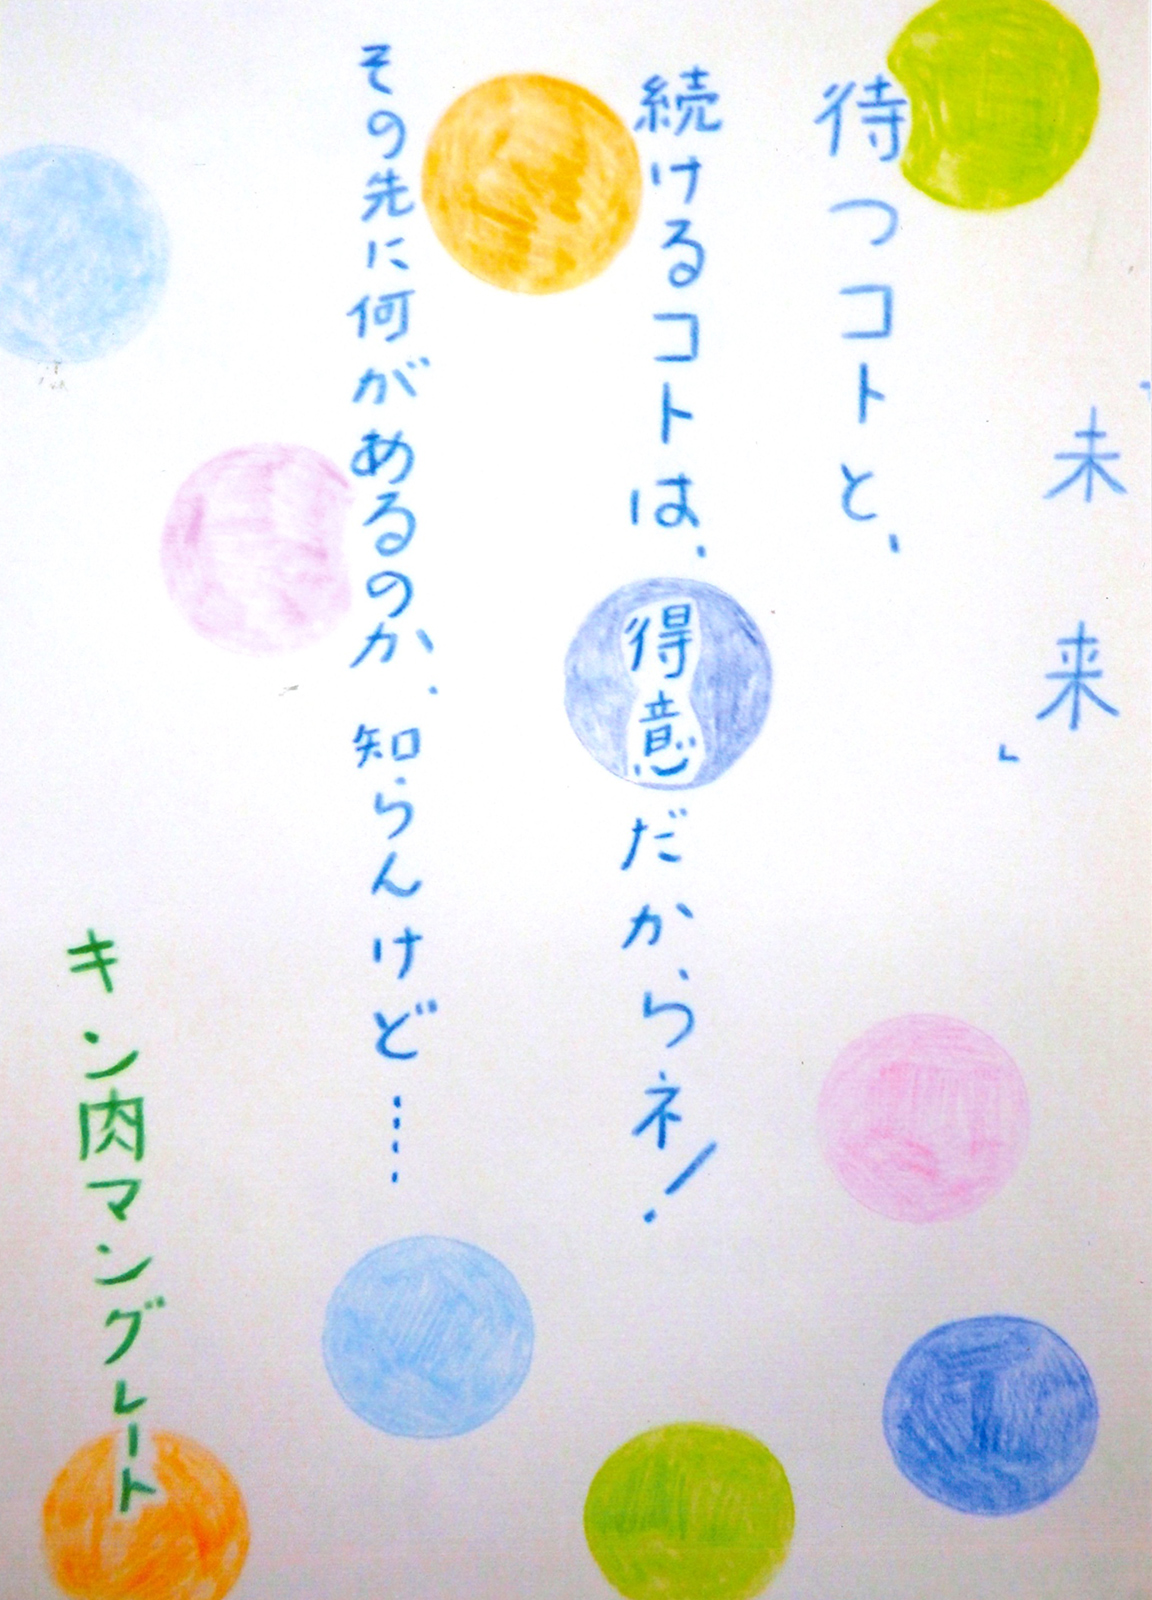 「未来」
待つコトと、
続けるコトは、得意だからネ！
その先に何があるのか、知らんけど……
キン肉マングレート